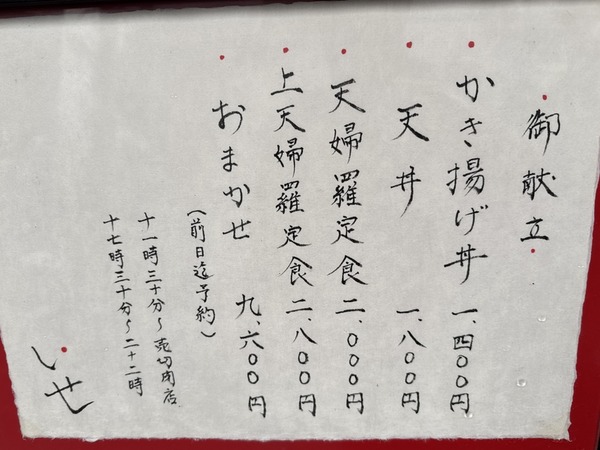 御献立
かき揚げ丼 一、四〇〇円
天丼 一、八〇〇円
天婦羅定食 二、〇〇〇円
上天婦羅定食 二、八〇〇円
おまかせ 九、六〇〇円
（前日迄予約）
十一時三十分〜売切閉店
十七時三十分〜二十二時
いせ